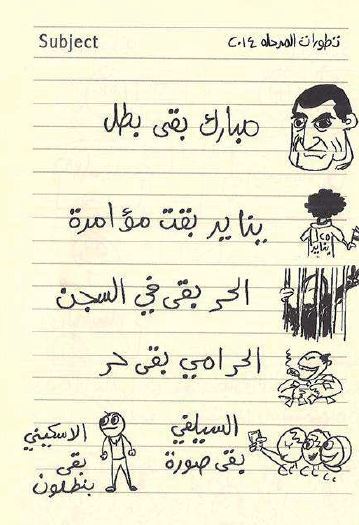 Subject
تطورات المرحله ٢٠١٤
مبارك بقى بطل
يناير بقت مؤامرة
٢٥
يناير
الحر بقى في السجن
الحرامي بقى حر
السيلفي
بقى صورة
الاسكيني
بقى
بنطلون